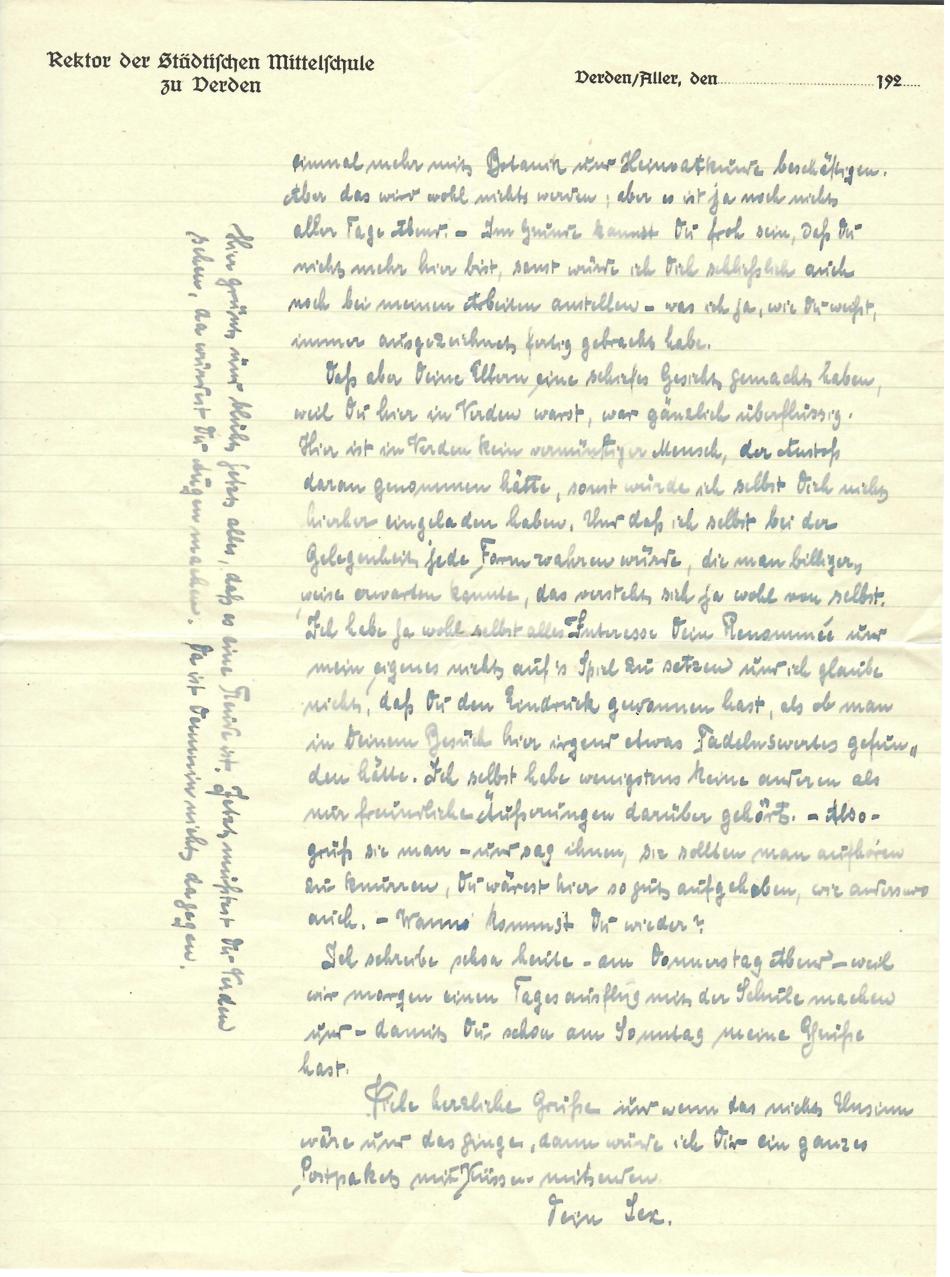 Rektor der Städtischen Mittelschule
zu Verden
Verden/Aller, den 192
einmal mehr mit Botanik und Heimatkunde beschäftigen.
Aber das wird wohl nichts werden; aber es ist ja noch nicht
aller Tage Abend. – Im Grunde kannst Du froh sein, daß Du
nicht mehr hier bist, sonst würde ich Dich schließlich auch
noch bei meinen Arbeiten anstellen – was ich ja, wie Du weißt,
immer ausgezeichnet fertig gebracht habe.
Daß aber Deine Eltern eine schiefes Gesicht gemacht haben,
weil Du hier in Verden warst, war gänzlich überflüssig.
Hier ist in Verden kein vernünftiger Mensch, der Anstoß
daran genommen hätte, sonst würde ich selbst Dich nicht
hierher eingeladen haben. Und daß ich selbst bei der
Gelegenheit jede Form wahren würde, die man billiger,
weise erwarten konnte, das versteht sich ja wohl von selbst.
Ich habe ja wohl selbst alles Interesse Dein Renommée und
mein eigenes nicht auf's Spiel zu setzen und ich glaube
nicht, daß Du den Eindruck gewonnen hast, als ob man
in Deinem Besuch hier irgend etwas Tadelnswertes gefun„
den hätte. Ich selbst habe wenigstens keine anderen als
nur freundliche Äußerungen darüber gehört. – Also –
grüß sie man – und sag ihnen, sie sollten man aufhören
zu knurren, Du wärest hier so gut aufgehoben, wie anderswo
auch. – Wann kommst Du wieder?
Ich schreibe schon heute – am Donnerstag Abend – weil
wir morgen einen Tagesausflug mit der Schule machen
und – damit Du schon am Sonntag meine Grüße
hast.
Viele herzliche Grüße und wenn das nicht Unsinn
wäre und das ginge, dann würde ich Dir ein ganzes
Postpaket mit Küssen mitsenden.
Dein
Hier grünt und blüht jetzt alles, daß es eine Freude ist. Jetzt müßtest Du Verden
sehen, da würdest Du Augen machen. Da ist nichts dagegen.